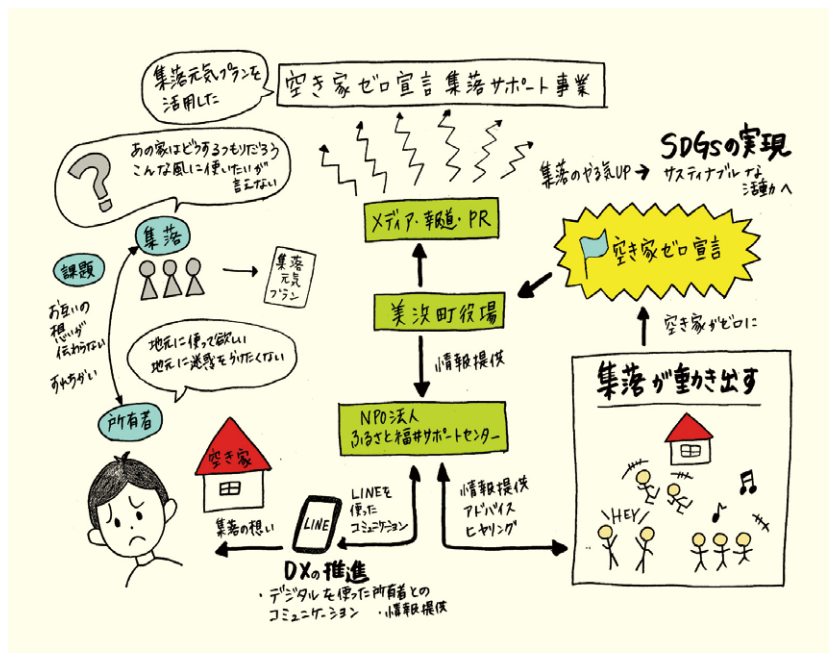 集落元気プランを
活用した
空き家ゼロ宣言 集落サポート事業
あの家はどうするつもりだろう
こんな風に使いたいが
言えない
?
集落
課題
お互いの
想いが
伝わらない
すれちがい
集落
元気
プラン
地元に使って欲しい
地元に迷惑をかけたくない
所有者
空き家
集落の想い
LINE
LINEを
使った
コミュニケーション
DXの推進
・デジタルを使った所有者との
コミュニケーション ・情報提供
メディア・報道・PR
美浜町役場
情報提供
NPO法人
ふるさと福井サポートセンター
情報提供
アドバイス
ヒヤリング
集落が動き出す
HEY!
空き家がゼロに
空き家ゼロ宣言
集落のやる気UP→
SDGsの実現
サスティナブルな
活動へ